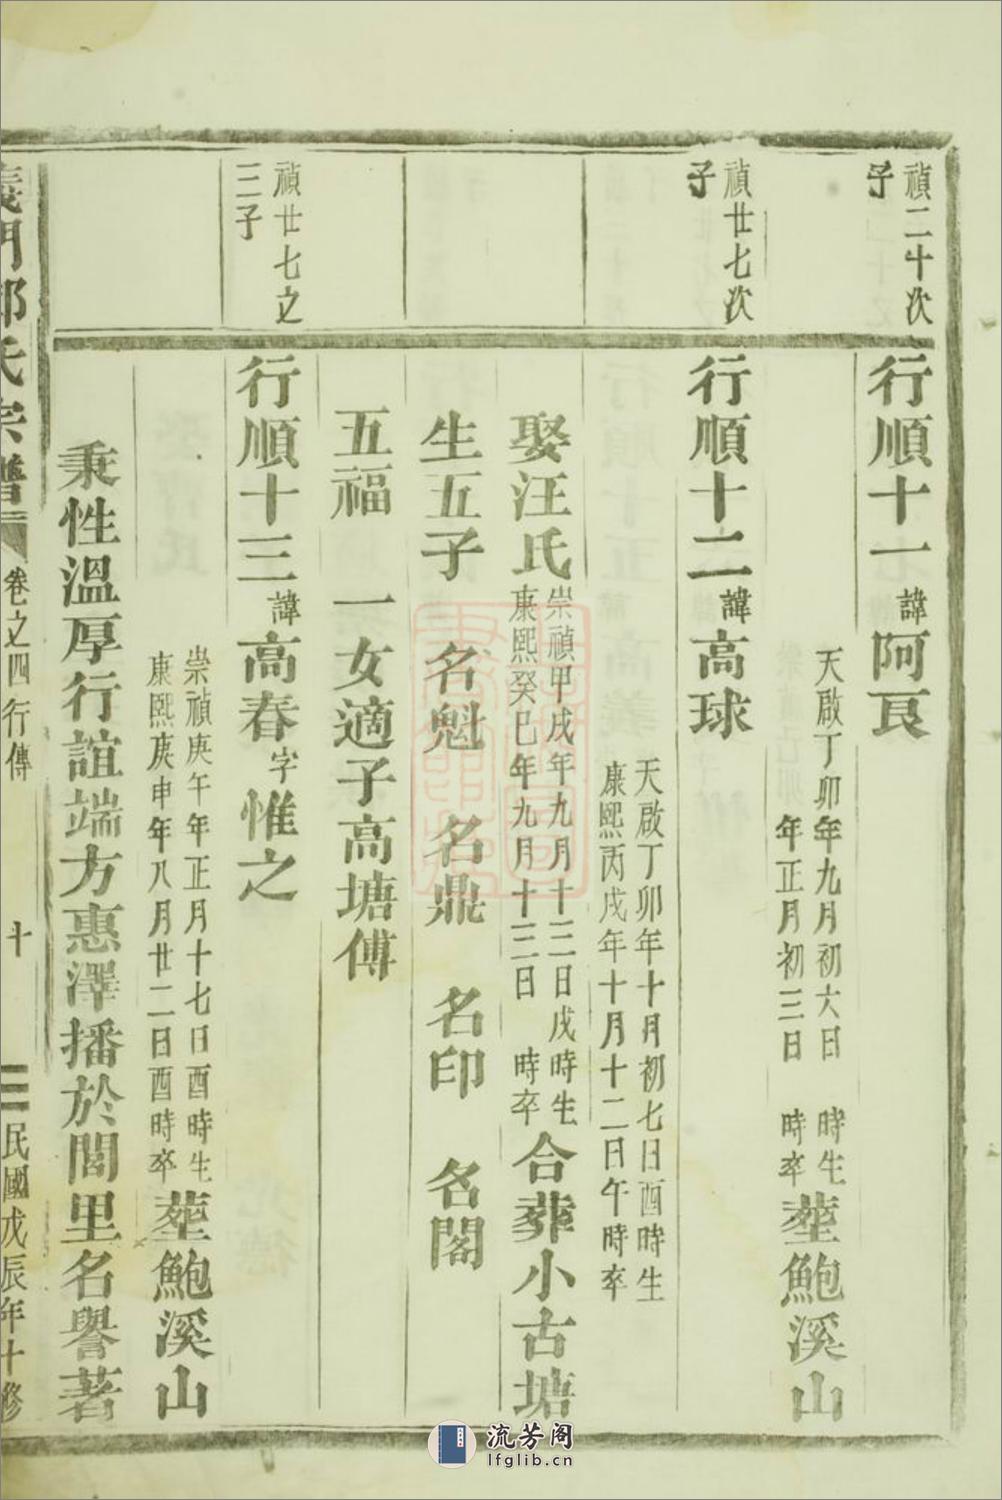 禎二十次
子
行順十一諱阿良
天啟丁卯年九月初六日 時生
年正月初三日 時卒
塟鮑溪山
禎廿七次
子
行順十二諱高球
天啟丁卯年十月初七日酉時生
康熙丙戌年十月十二日午時卒
娶汪氏
崇禎甲戌年九月十二日戌時生
康熙癸巳年九月十三日 時卒
合葬小古塘
生五子 名魁 名鼎 名印 名閣
五福 一女適子高塘傅
禎廿七之
三子
行順十三諱高春字惟之
崇禎庚午年正月十七日酉時生
康熙庚申年八月廿二日酉時卒
塟鮑溪山
秉性溫厚行誼端方惠澤播於閭里名譽著
義門鄭氏宗譜 卷之四行傳 十 民國戊辰年十修
流芳阁
lfglib.cn